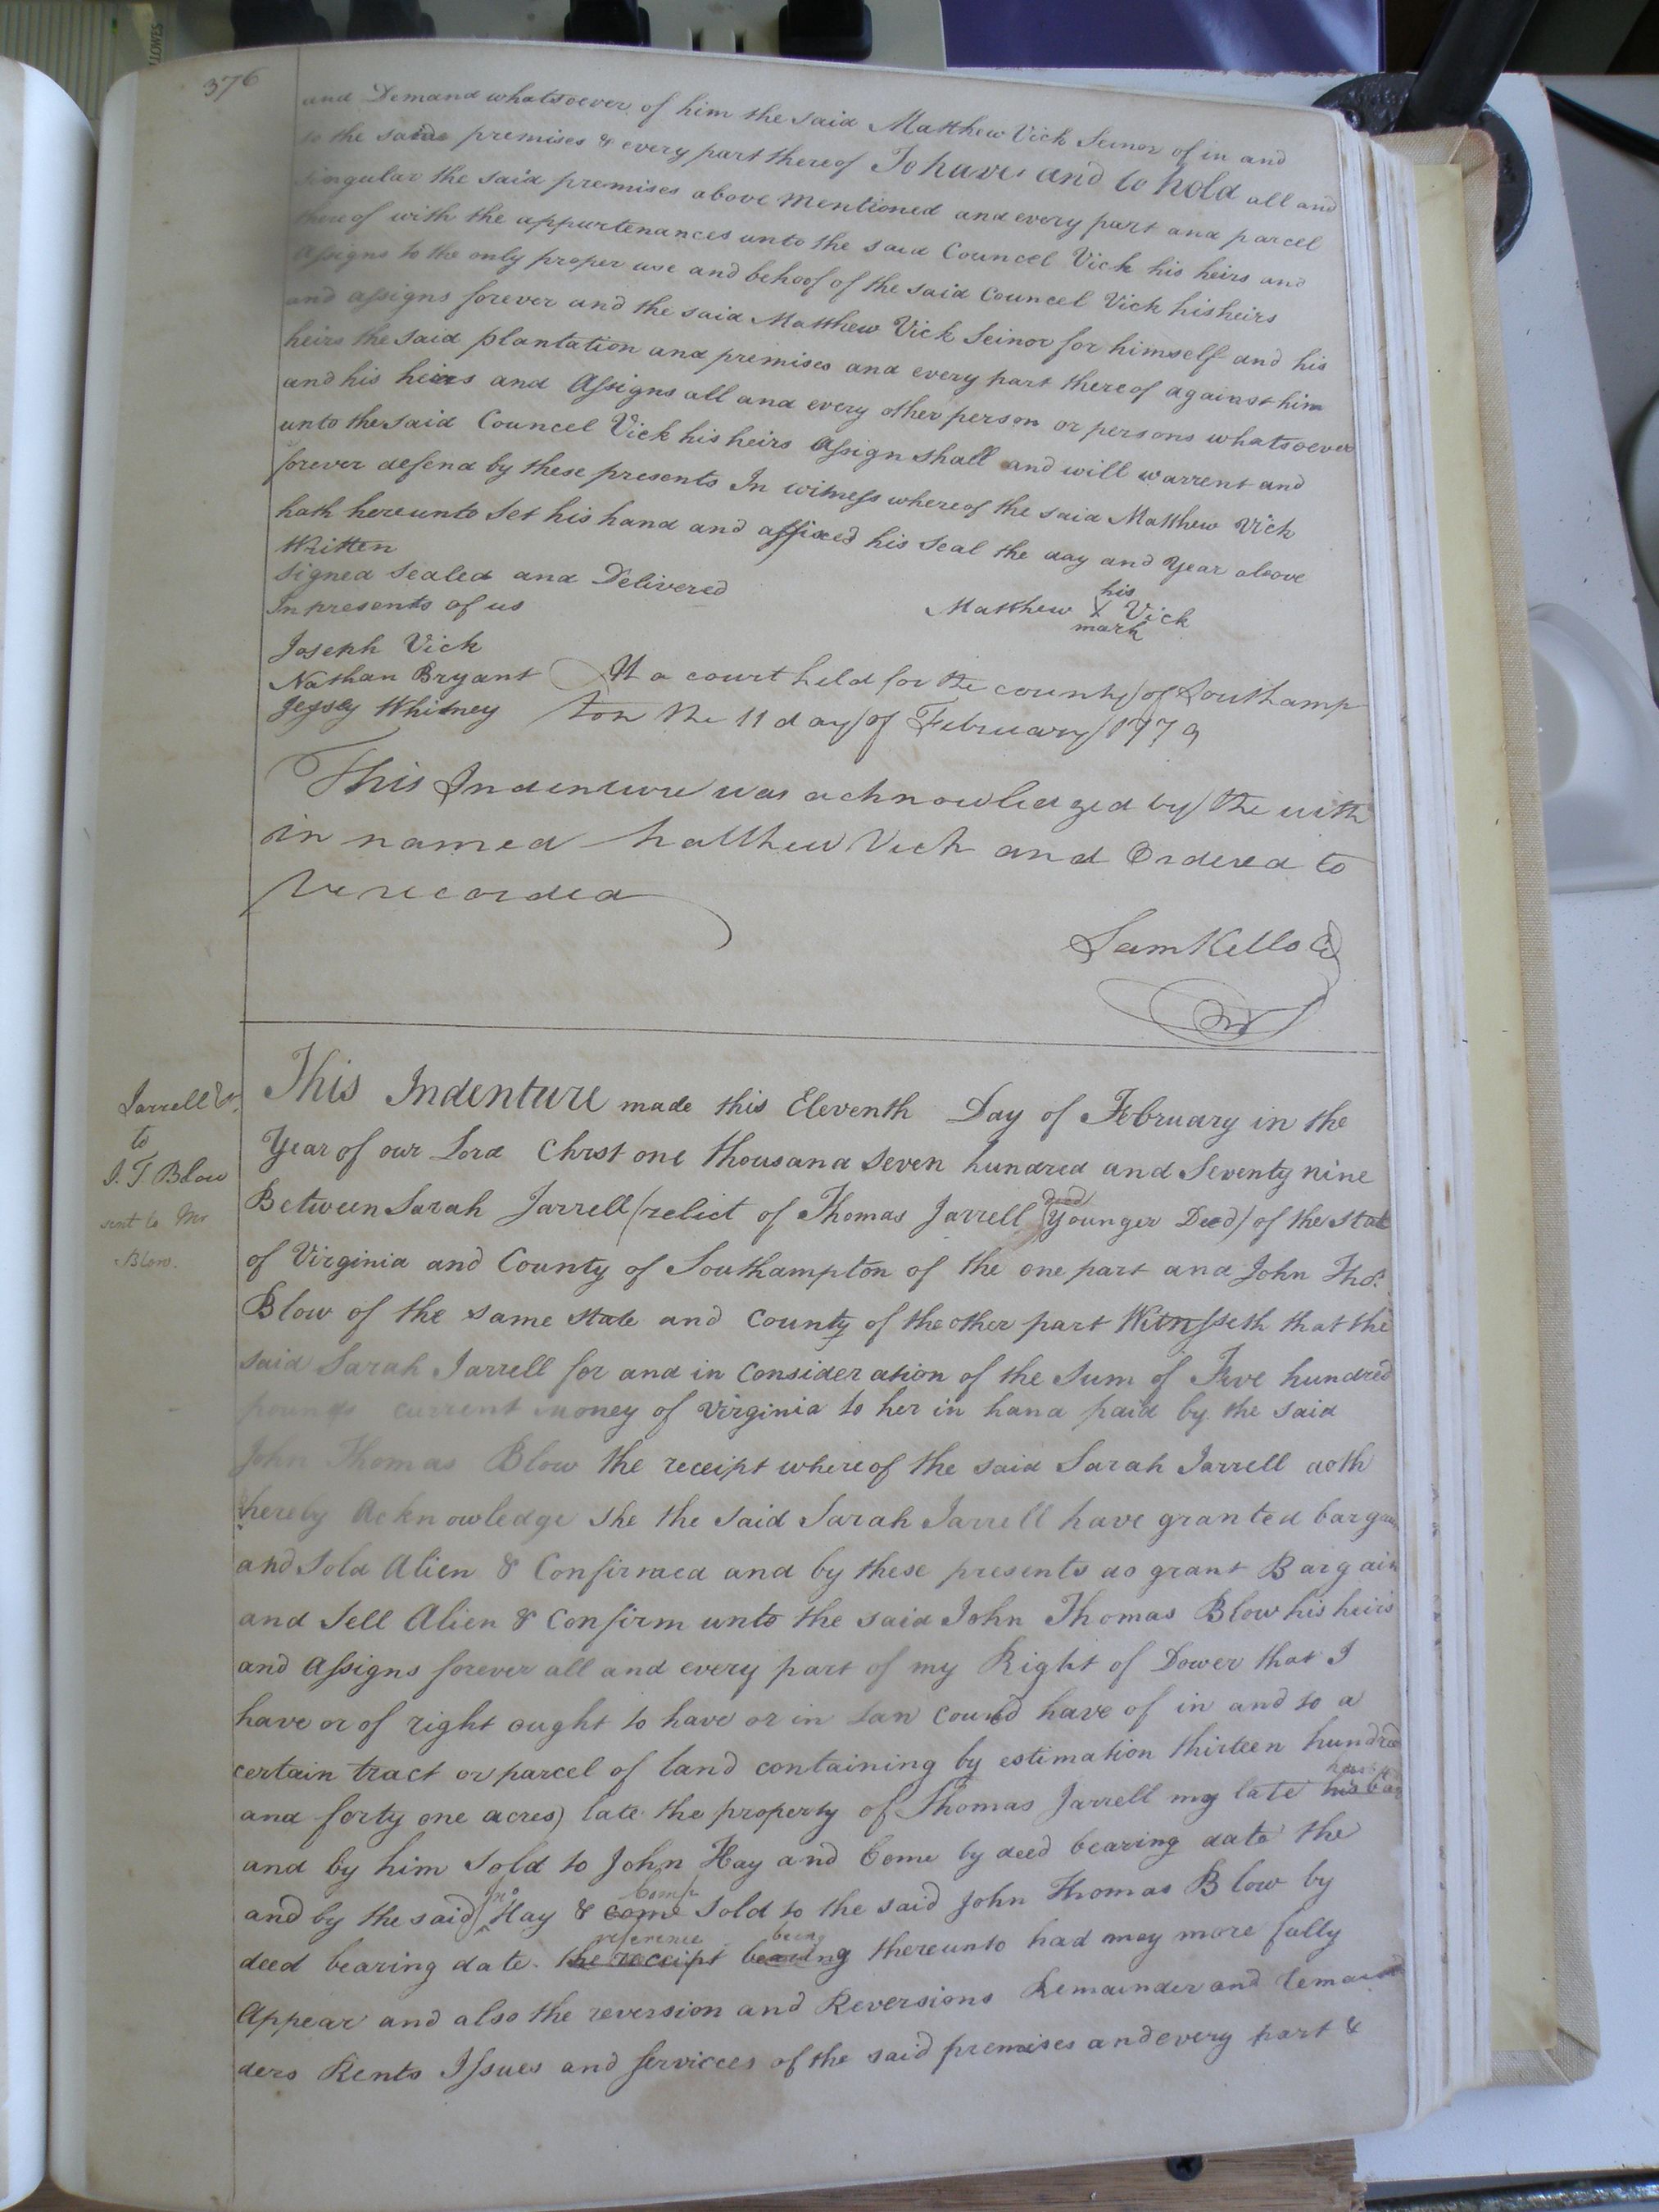 376
and Demand whatsoever of him the said Matthew Vick Seinor of in and
to the same premises & every part thereof To have and to hold all and
singular the said premises above mentioned and every part and parcel
thereof with the appurtenances unto the said Councel Vick his heirs and
assigns to the only proper use and behoof of the said Councel Vick his heirs
and assigns forever and the said Matthew Vick Seinor for himself and his
heirs the said plantation and premises and every part thereof against him
and his heirs and Assigns all and every other person or persons whatsoever
unto the said Councel Vick his heirs Assign shall and will warrent and
forever defend by these presents In witness whereof the said Matthew Vick
hath hereunto set his hand and affixed his seal the day and Year above
Written
signed sealed and Delivered
In presents of us
his
Matthew X Vick
mark
Joseph Vick
Nathan Bryant
Whitney
At a court held for the county of Southamp
ton the 11 day of February 1779
This Indenture was acknowledged by the with
in named Matthew Vick and Ordered to
be recorded
Sam Kello
This Indenture made this Eleventh Day of February in the
Year of our Lord Christ one thousand seven hundred and Seventy nine
Between Sarah Jarrell (relict of Thomas Jarrell Younger Deed) of the state
of Virginia and County of Southampton of the one part and John Thos.
Blow of the same state and County of the other part Witnesseth that the
said Sarah Jarrell for and in consideration of the sum of Five hundred
pounds current money of Virginia to her in hand paid by the said
John Thomas Blow the receipt whereof the said Sarah Jarrell doth
hereby Acknowledge she the said Sarah Jarrell have granted bargain
and sold Alien & Confirmed and by these presents do grant Bargain
and Sell Alien & Confirm unto the said John Thomas Blow his heirs
and Assigns forever all and every part of my Right of Dower that I
have or of right ought to have or in Law could have of in and to a
certain tract or parcel of land containing by estimation thirteen hundred
and forty one acres) late the property of Thomas Jarrell my late husband
and by him sold to John Hay and Come by deed bearing date the
and by the said Jno Hay & come Comp sold to the said John Thomas Blow by
deed bearing date the receipt reference bearing being thereunto had may more fully
Appear and also the reversion and Reversions Remainder and Remain
ders Rents Issues and services of the said premises and every part &
Jarrell
to
J. T. Blow
sent to Mr
Blow.